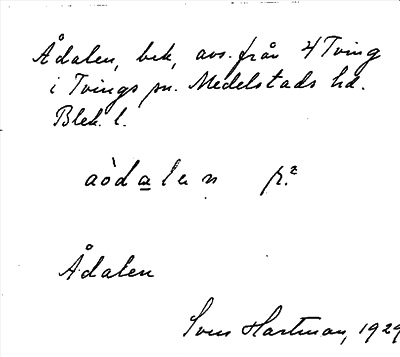 Ådalen, bek, avs. från 4 Tving
i Tvings sn. Medelstads hd.
Blek. l.
aòdalen fr.²
Ådalen
Sven Hartman, 1929